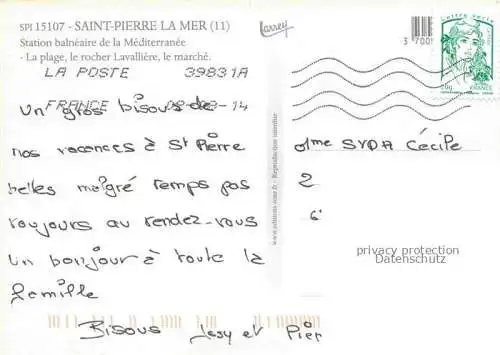 SPI 15107 - SAINT-PIERRE LA MER (11)
Station balnéaire de la Méditerranée
- La plage, le rocher Lavallière, le marché.
Larrey
3 700
LA POSTE 39831A
FRANCE 14
20g
FRANCE
Un gros bisous de
nos vacances à St Pierre
belles malgré temps pas
toujours au rendez-vous
Un bonjour à toute la
famille
Bisous Jessy et Pier
www.editions-sour.fr - Reproduction interdite
Mme SYDA Cécile
2
6
privacy protection
Datenschutz